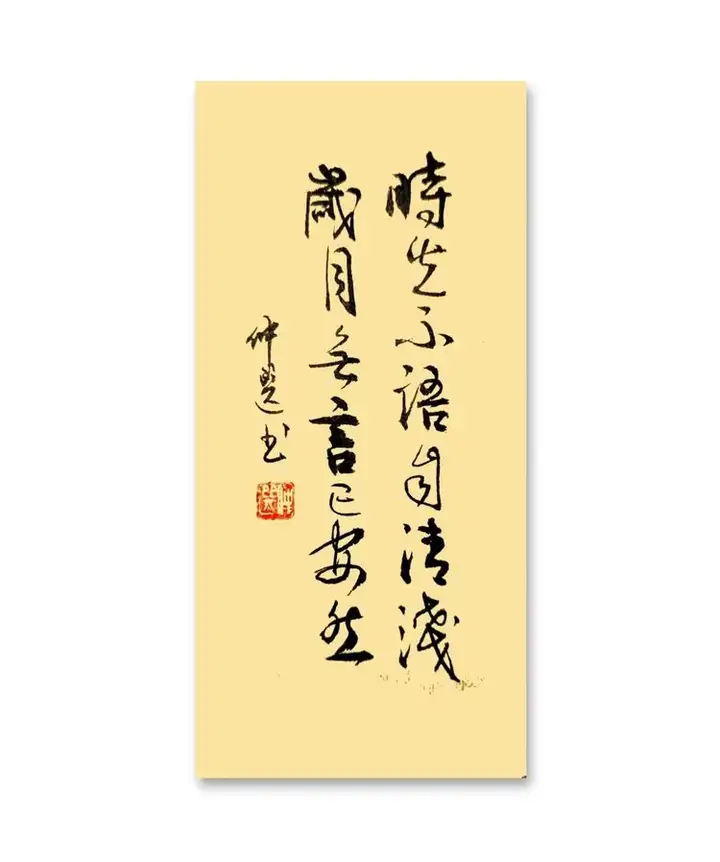 時光不語自清淺
歲月無言已安然
仲選書